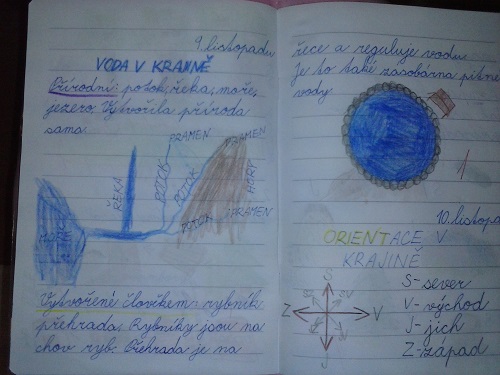 9. listopadu
VODA V KRAJINĚ
Přírodní: potok, řeka, moře,
jezero. Vytvořila příroda
sama.
PRAMEN
PRAMEN
ŘEKA
POTOK
POTOK
HORY
POTOK
PRAMEN
Vytvořené člověkem: rybník
přehrada. Rybníky jsou na
chov ryb. Přehrada je na
řece a reguluje vodu.
Je to také zásobárna pitné
vody.
1
10. listopa
ORIENTACE V
KRAJINĚ
S
S- sever
Z
V
V- východ
J
J- jih
Z- západ